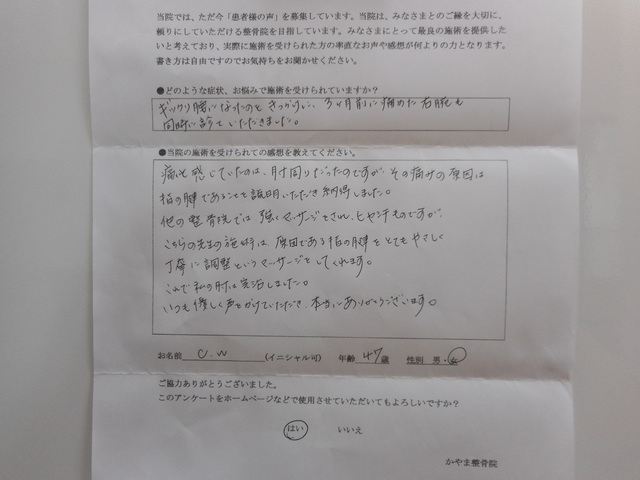 当院では、ただ今「患者様の声」を募集しています。当院は、みなさまとのご縁を大切に、
頼りにしていただける整骨院を目指しています。みなさまにとって最良の施術を提供した
いと考えており、実際に施術を受けられた方の率直なお声や感想が何よりの力となります。
書き方は自由ですのでお気持ちをお聞かせください。
●どのような症状、お悩みで施術を受けられていますか？
ギックリ腰になったのをきっかけに、3ヶ月前に痛めた右腕も
同時に診ていただきました。
●当院の施術を受けられての感想を教えてください。
痛いと感じていたのは、肘周りだったのですが、その痛みの原因は
指の腱であることを説明いただき納得しました。
他の整骨院では強くマッサージをされ、ヒヤヒヤものですが、
こちらの先生の施術は原因である指の腱をとてもやさしく
丁寧に調整というマッサージをしてくれます。
これで私の肘は復活しました。
いつも優しく声をかけていただき、本当にありがとうございます。
お名前 C.W （イニシャル可） 年齢 47歳 性別 男・女
ご協力ありがとうございました。
このアンケートをホームページなどで使用させていただいてもよろしいですか？
はい いいえ
かやま整骨院